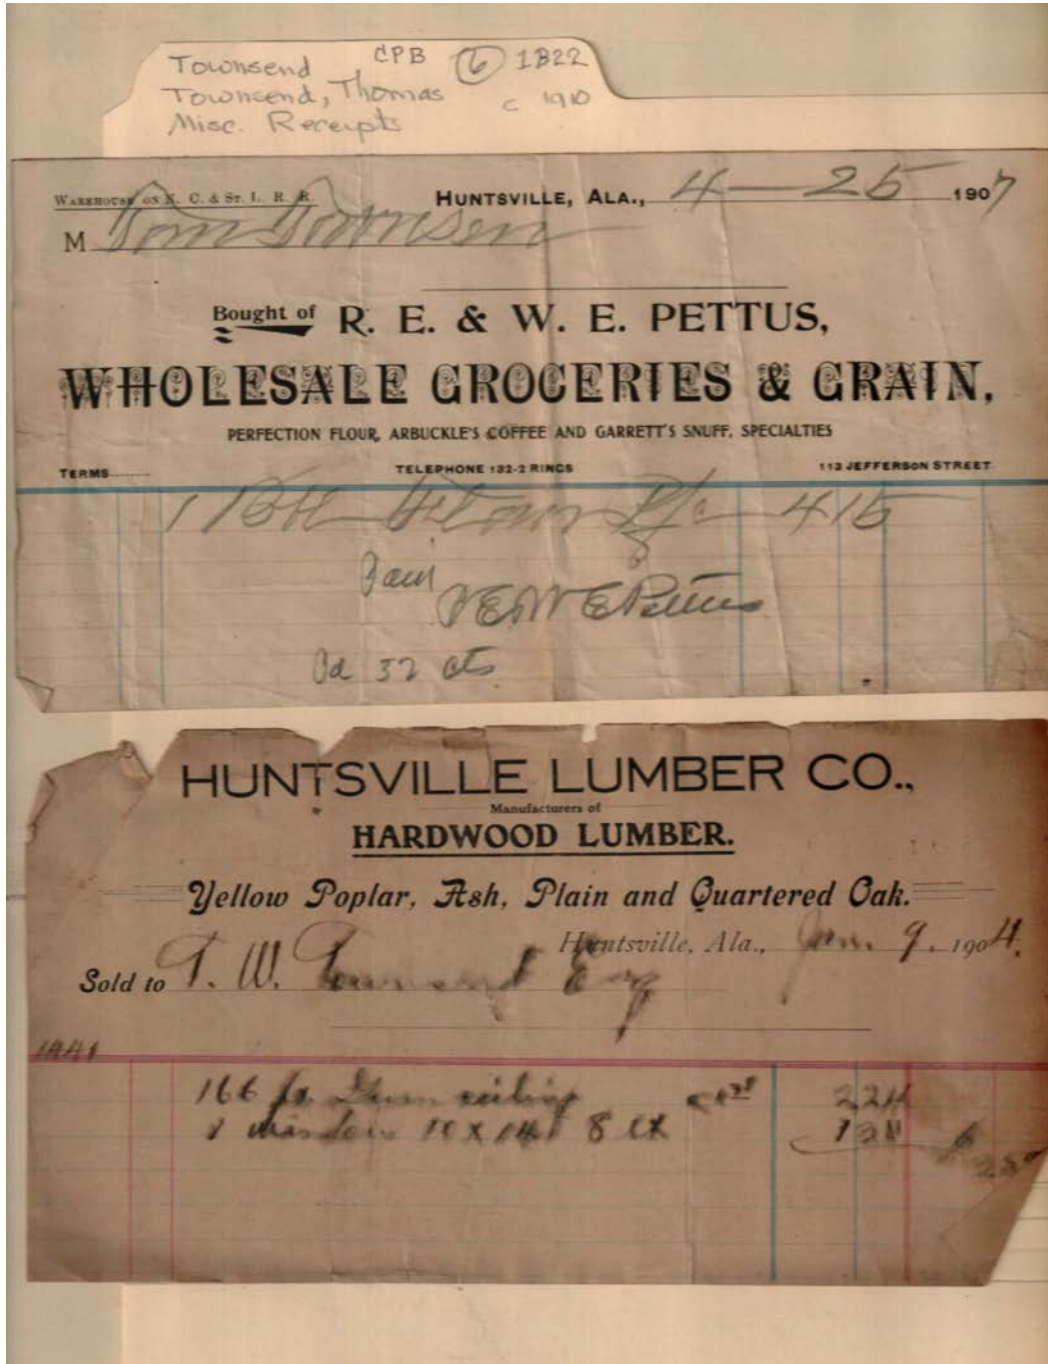 Townsend CPB 6 1822
Townsend, Thomas c 1910
Misc. Receipts
WAREHOUSE ON N. C. & ST. L. R. R. HUNTSVILLE, ALA., 4—25 1907
M Tom Townsen
Bought of R. E. & W. E. PETTUS,
WHOLESALE GROCERIES & GRAIN,
PERFECTION FLOUR, ARBUCKLE'S COFFEE AND GARRETT'S SNUFF, SPECIALTIES
TERMS TELEPHONE 132-2 RINGS 113 JEFFERSON STREET
1 Bbl 415
Paid
R E & W E Pettus
Pd 32 cts
HUNTSVILLE LUMBER CO.,
Manufacturers of
HARDWOOD LUMBER.
Yellow Poplar, Ash, Plain and Quartered Oak.
Huntsville, Ala., Jan. 9. 1904.
Sold to T. W. Townsend Esq
166 ft. Gum ceiling 224
1 window 10 x 14 8 Lt